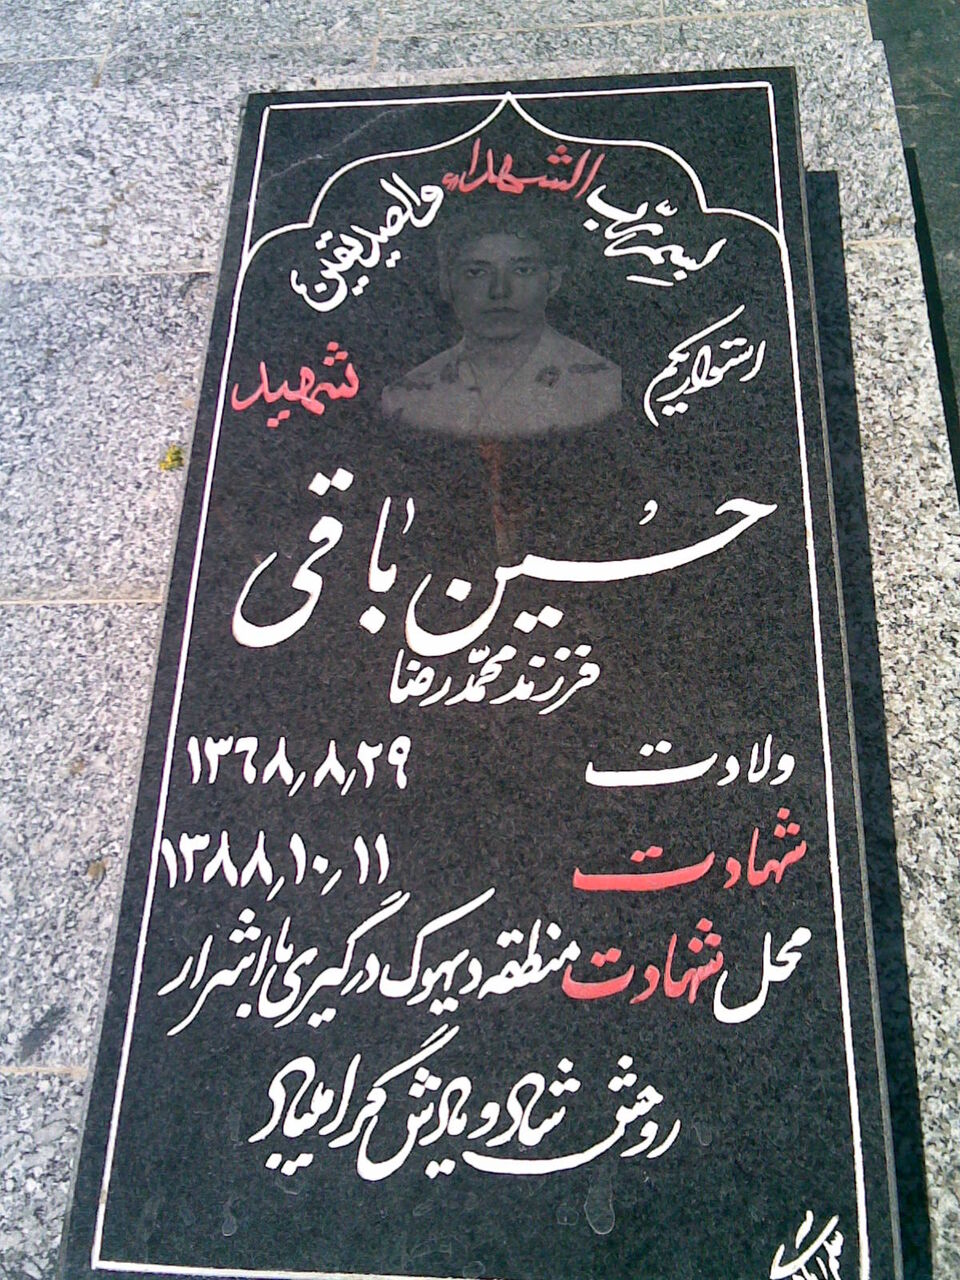 بسم رب الشهداء والصدیقین
استواریکم شهید
حسین باقی
فرزند محمدرضا
ولادت ۱۳۶۸٫۸٫۲۹
شهادت ۱۳۸۸٫۱۰٫۱۱
محل شهادت منطقه دیهوک درگیری با اشرار
روحش شاد و یادش گرامی باد